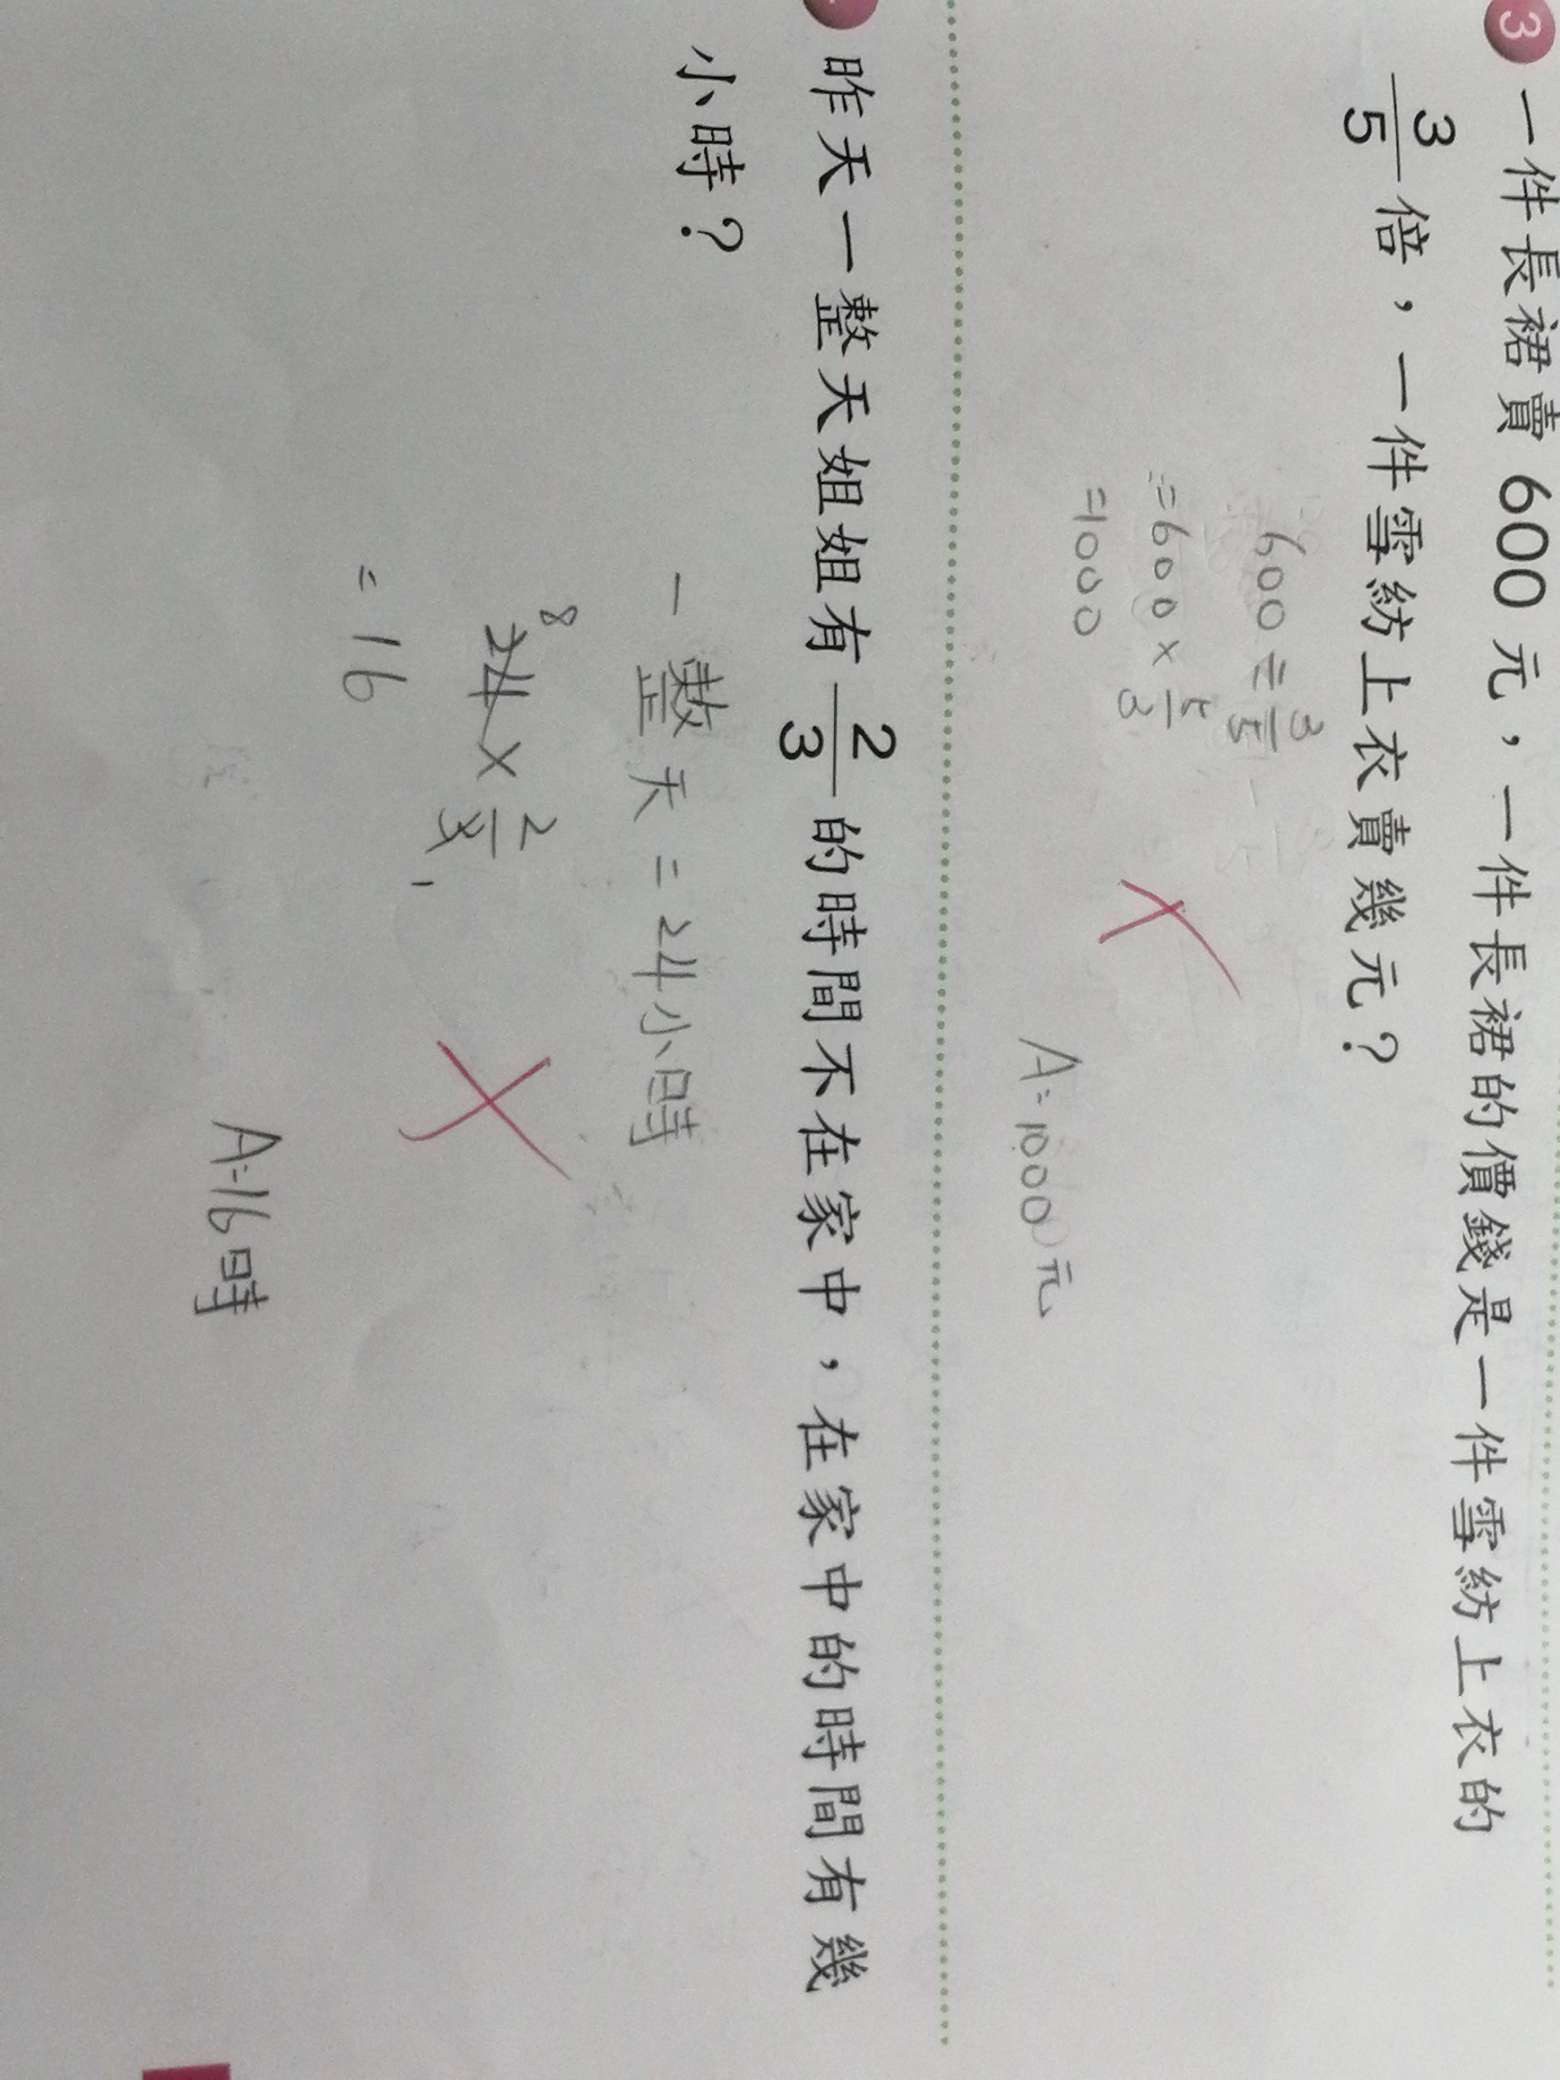 3 一件長裙賣 600 元，一件長裙的價錢是一件雪紡上衣的
3/5 倍，一件雪紡上衣賣幾元？
600÷3/5
=600×5/3
=1000
A:1000元
昨天一整天姐姐有 2/3 的時間不在家中，在家中的時間有幾
小時？
一整天=24小時
8
24×2/3
1
=16
A:16時